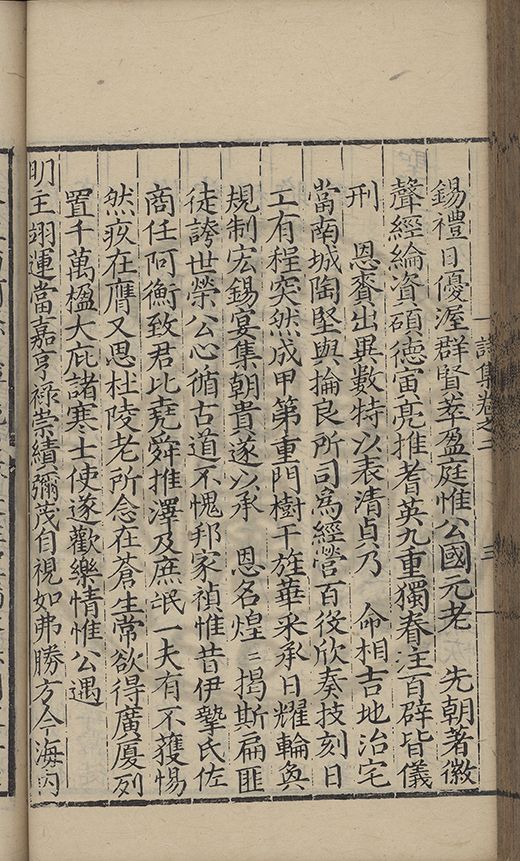 詩集卷之二
三
錫禮日優渥群賢萃盈庭惟公國元老 先朝著徽
聲經綸資碩德寅亮推耆英九重獨眷注百辟皆儀
刑 恩賚出異數特以表清貞乃 命相吉地治宅
當南城陶堅與掄良所司為經營百役欣奏技刻日
工有程突然成甲第重門樹干旌華采承日耀輪奐
規制宏錫宴集朝貴遂以承 恩名煌〻揭斯扁匪
徒誇世榮公心循古道不愧邦家禎惟昔伊摯氏佐
商任阿衡致君比堯舜推澤及庶氓一夫有不獲惕
然疚在膺又思杜陵老所念在蒼生常欲得廣厦列
置千萬楹大庇諸寒士使遂歡樂情惟公遇
明主翊運當嘉亨祿崇績彌茂自視如弗勝方今海內